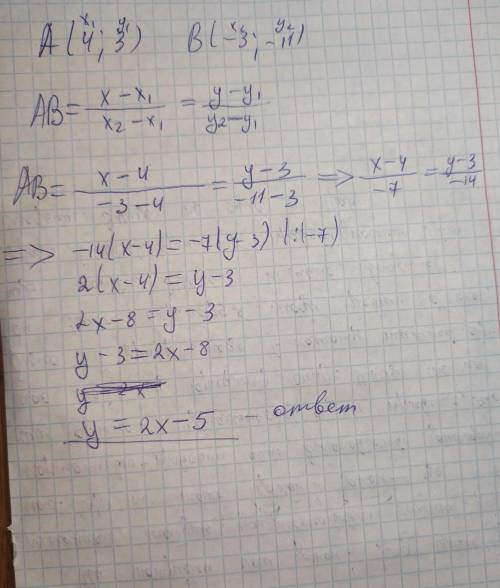 A (4; 3) B(-3; -11)
x₁ y₁ x₂ y₂
AB = x - x₁ / x₂ - x₁ = y - y₁ / y₂ - y₁
AB = x - 4 / -3 - 4 = y - 3 / -11 - 3 => x - 4 / -7 = y - 3 / -14
=> -14(x-4) = -7(y-3) |:(-7)
2(x-4) = y-3
2x-8 = y-3
y-3 = 2x-8
y = 2x-5 - ответ